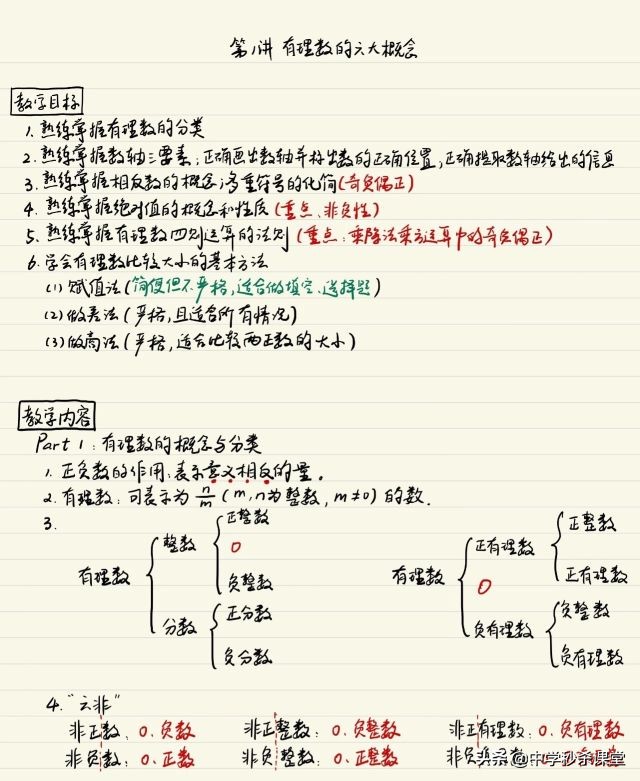 第1讲 有理数的六大概念
教学目标
1. 熟练掌握有理数的分类
2. 熟练掌握数轴三要素，正确画出数轴并标出数的正确位置，正确提取数轴给出的信息
3. 熟练掌握相反数的概念，多重符号的化简(奇负偶正)
4. 熟练掌握绝对值的概念和性质(重点：非负性)
5. 熟练掌握有理数四则运算的法则(重点：乘除法乘方运算中的奇负偶正)
6. 学会有理数比较大小的基本方法
(1) 赋值法(简便但不严格，适合做填空、选择题)
(2) 做差法(严格，且适合所有情况)
(3) 做商法(严格，适合比较两正数的大小)
教学内容
Part 1：有理数的概念与分类
1. 正负数的作用：表示意义相反的量.
2. 有理数：可表示为 n/m (m,n为整数，m≠0)的数.
3.
有理数 { 整数 { 正整数
0
负整数
分数 { 正分数
负分数
有理数 { 正有理数 { 正整数
正有理数
0
负有理数 { 负整数
负有理数
4. "六非"
非正数：0、负数 非正整数：0、负整数 非正有理数：0、负有理数
非负数：0、正数 非负整数：0、正整数 非负
头条@中学秒杀课堂